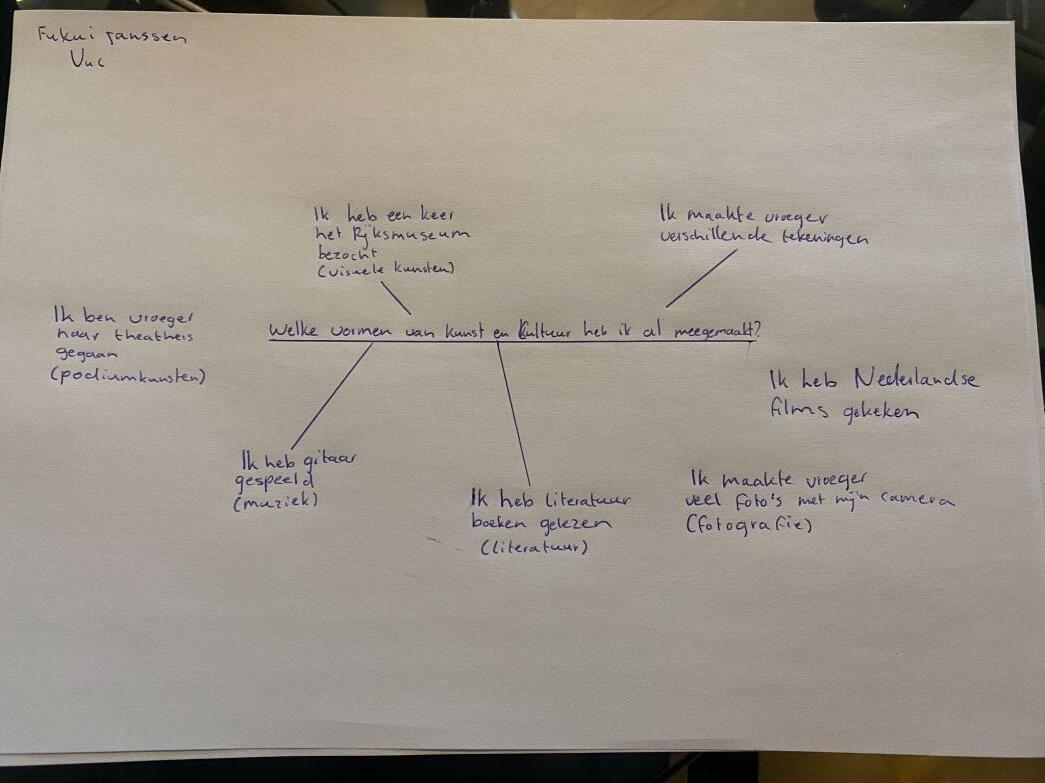 Fukui Janssen
Vuc
Ik heb een keer
het Rijksmuseum
bezocht
(visuele kunsten)
Ik maakte vroeger
verschillende tekeningen
Ik ben vroeger
naar theathers
gegaan
(podiumkunsten)
Welke vormen van kunst en Kultuur heb ik al meegemaakt?
Ik heb Nederlandse
films gekeken
Ik heb gitaar
gespeeld
(muziek)
Ik heb literatuur
boeken gelezen
(literatuur)
Ik maakte vroeger
veel foto's met mijn camera
(fotografie)